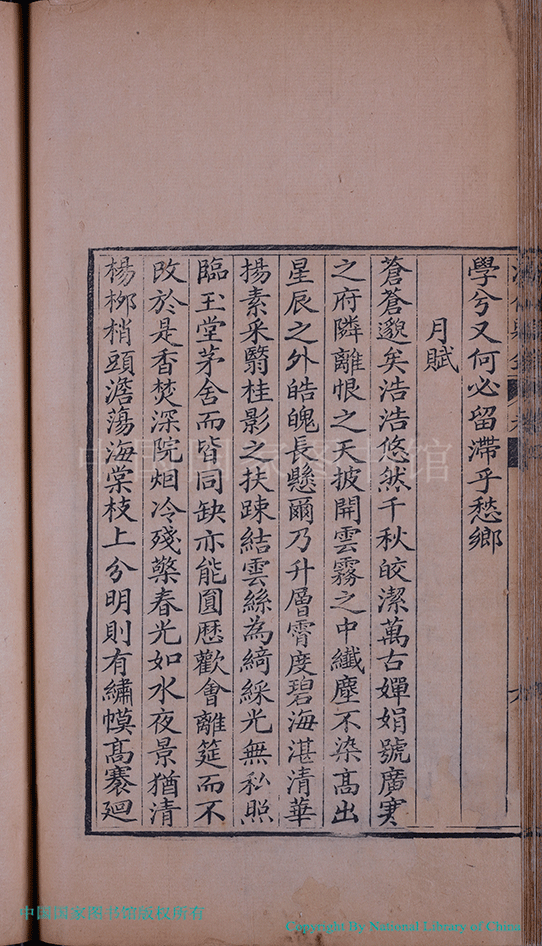 學兮又何必留滯乎愁鄉
月賦
蒼蒼邈矣浩浩悠然千秋皎潔萬古嬋娟號廣寒
之府隣離恨之天披開雲霧之中纖塵不染高出
星辰之外皓魄長懸爾乃升層霄度碧海湛清華
揚素采翳桂影之扶踈結雲絲為綺綵光無私照
臨玉堂茅舍而皆同缺亦能圓歴歡會離筵而不
改於是香焚深院烟冷殘檠春光如水夜景猶清
楊柳梢頭澹蕩海棠枝上分明則有繡幙高褰廻
中国国家图书馆
中国国家图书馆版权所有
Copyright By National Library of China